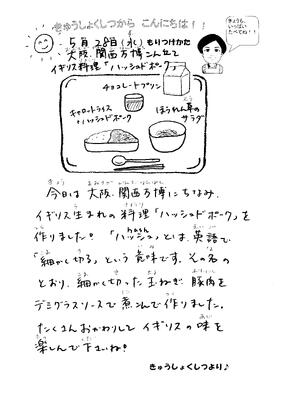 きゅうしょくしつから こんにちは!!
きょうも、
いっぱい
たべてね!!
5月28日(水)もりつけかた
大阪、関西万博こんだて
イギリス料理「ハッシュドポーク」
チョコレートプリン
キャロットライス
ハッシュドポーク
ほうれん草の
サラダ
今日は大阪、関西万博にちなみ、
イギリス生まれの料理「ハッシュドポーク」を
作りました。「ハッシュ hash」とは、英語で
「細かく切る」という意味です。その名の
とおり、細かく切った玉ねぎ、豚肉を
デミグラスソースで煮こんで作りました。
たくさんおかわりして イギリスの味を
楽しんで下さいね!
きゅうしょくしつより♪